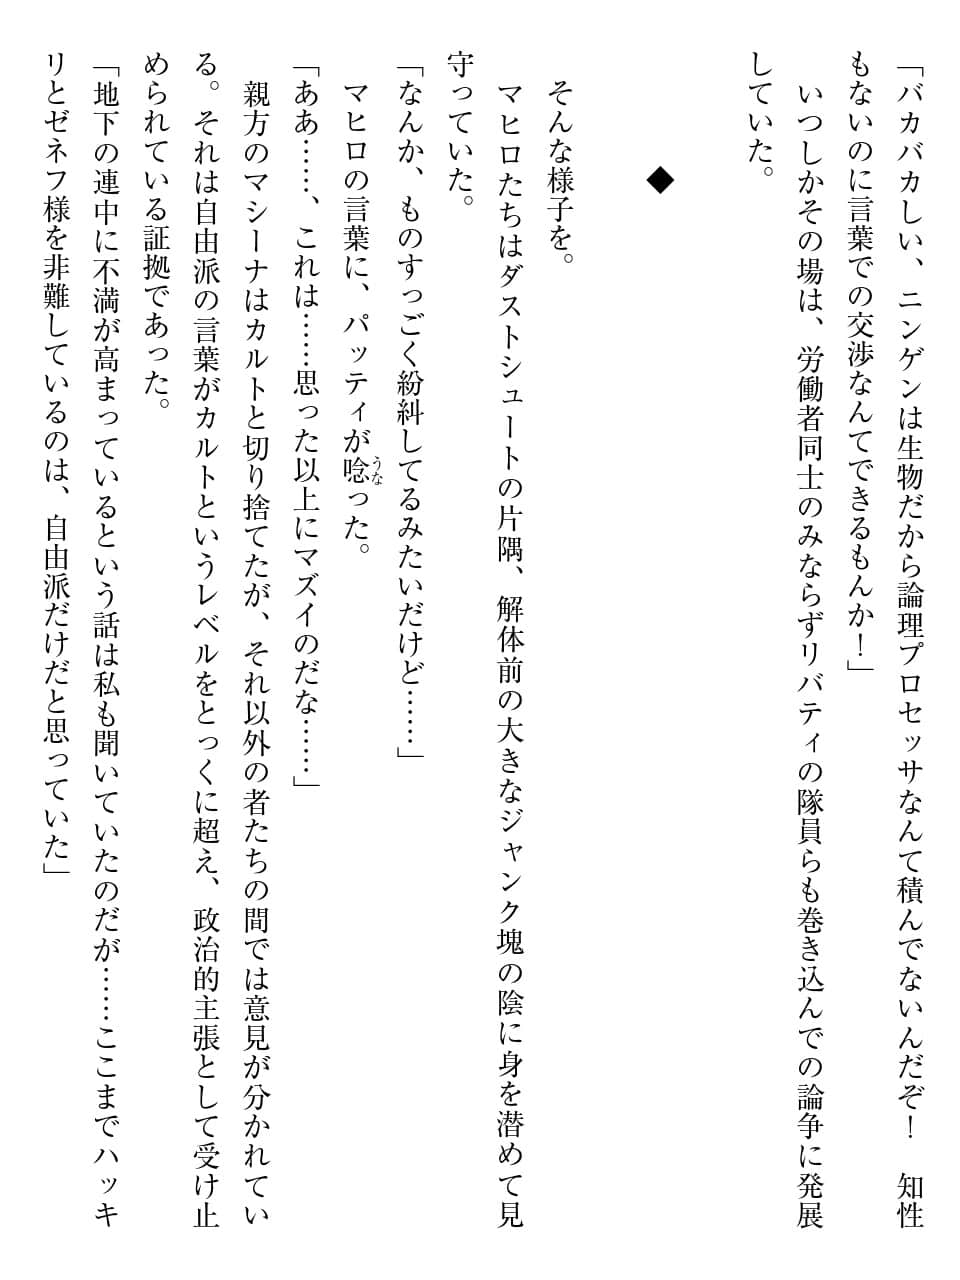 「バカバカしい、ニンゲンは生物だから論理プロセッサなんて積んでないんだぞ！　知性
もないのに言葉での交渉なんてできるもんか！」
　いつしかその場は、労働者同士のみならずリバティの隊員らも巻き込んでの論争に発展
していた。
◆
　そんな様子を。
　マヒロたちはダストシュートの片隅、解体前の大きなジャンク塊の陰に身を潜めて見
守っていた。
「なんか、ものすっごく紛糾してるみたいだけど……」
　マヒロの言葉に、パッティが唸うなった。
「ああ……、これは……思った以上にマズイのだな……」
　親方のマシーナはカルトと切り捨てたが、それ以外の者たちの間では意見が分かれてい
る。それは自由派の言葉がカルトというレベルをとっくに超え、政治的主張として受け止
められている証拠であった。
「地下の連中に不満が高まっているという話は私も聞いていたのだが……ここまでハッキ
リとゼネフ様を非難しているのは、自由派だけだと思っていた」